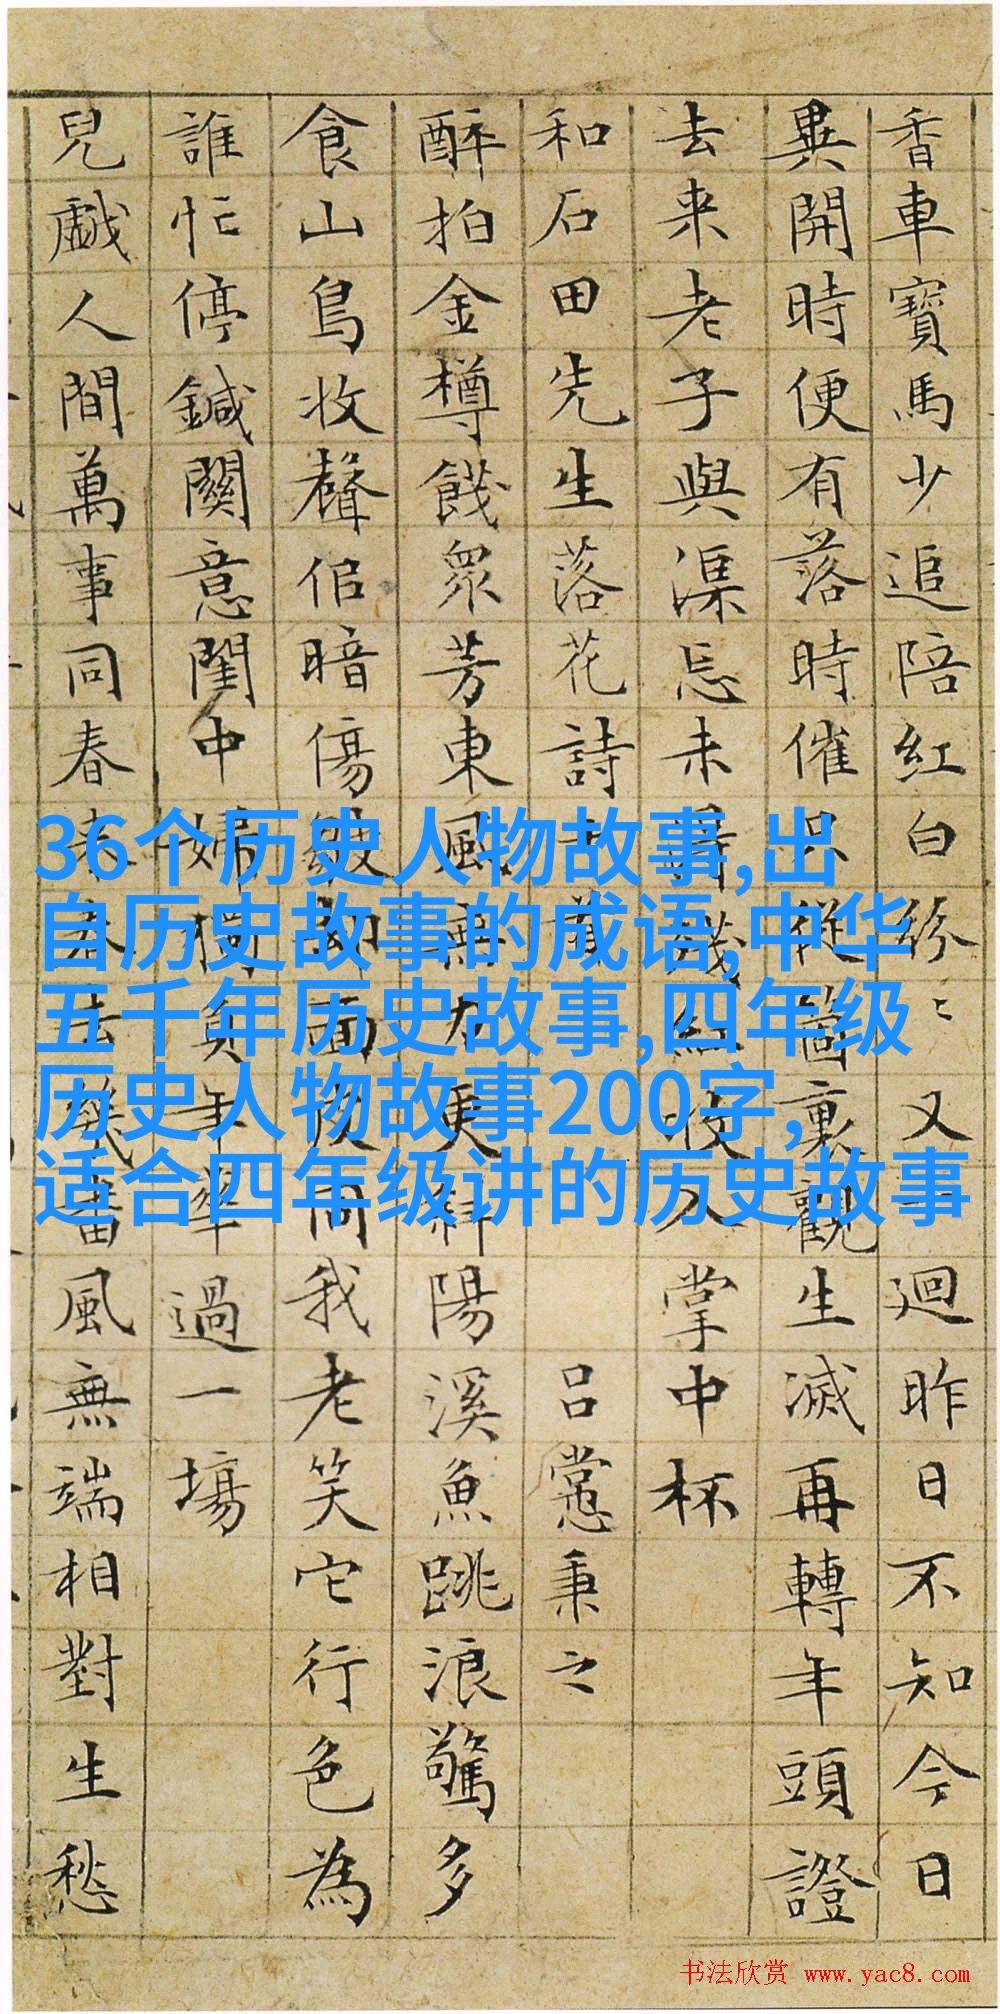 香車寶馬少追陪紅白紛〻又一迴昨日不知今日
異開時便有落時催只從箇裏觀生滅再轉年頭證
去来老子與渠忘未紅收入掌中杯
和石田先生落花詩十首 呂㦂秉之
醉拍金樽餞衆芳東風無力更斜陽溪魚跳浪驚多
食山鳥收聲伹暗傷皺却面皮同我老笑它行色為
誰忙停鍼關意閨中婦獨負年華過一場
兒戲人間萬事同春来春去幾番風無端相對生愁
36个历史人物故事,出
自历史故事的成语,中华
五千年历史故事,四年级
历史人物故事200字,
适合四年级讲的历史故事
书法欣赏 www.yac8.com